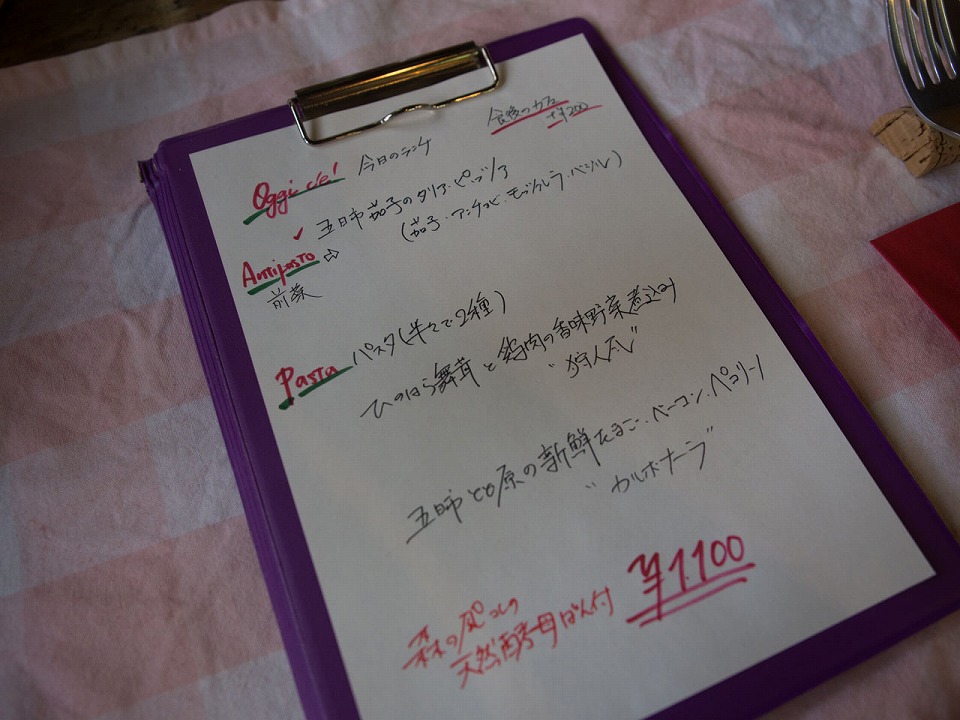 食後のカフェ
+¥200
Oggi c'e! 今日のランチ
✓ 五日市茄子のタリア・ピッツア
(茄子・アンチョビ・モッツァレラ・バジル)
Antipasto ⇨
前菜
Pasta パスタ(半々で2種)
ひのはら舞茸と鶏肉の香味野菜煮込み
"狩人風"
五日市 の新鮮たまご・ベーコン・ペコリーノ
"カルボナーラ"
森の
天然酵母ぱん付 ¥1.100